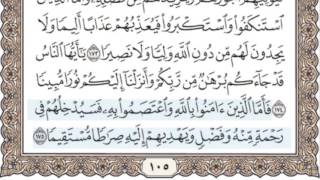 ٱسۡتَنكَفُواْ وَٱسۡتَكۡبَرُواْ فَيُعَذِّبُهُمۡ عَذَابًا أَلِيمٗا وَلَا
يَجِدُونَ لَهُم مِّن دُونِ ٱللَّهِ وَلِيّٗا وَلَا نَصِيرٗا ١٧٣ يَٰٓأَيُّهَا ٱلنَّاسُ
قَدۡ جَآءَكُم بُرۡهَٰنٞ مِّن رَّبِّكُمۡ وَأَنزَلۡنَآ إِلَيۡكُمۡ نُورٗا مُّبِينٗا
١٧٤ فَأَمَّا ٱلَّذِينَ ءَامَنُواْ بِٱللَّهِ وَٱعۡتَصَمُواْ بِهِۦ فَسَيُدۡخِلُهُمۡ فِي
رَحۡمَةٖ مِّنۡهُ وَفَضۡلٖ وَيَهۡدِيهِمۡ إِلَيۡهِ صِرَٰطٗا مُّسۡتَقِيمٗا ١٧٥
١٠٥